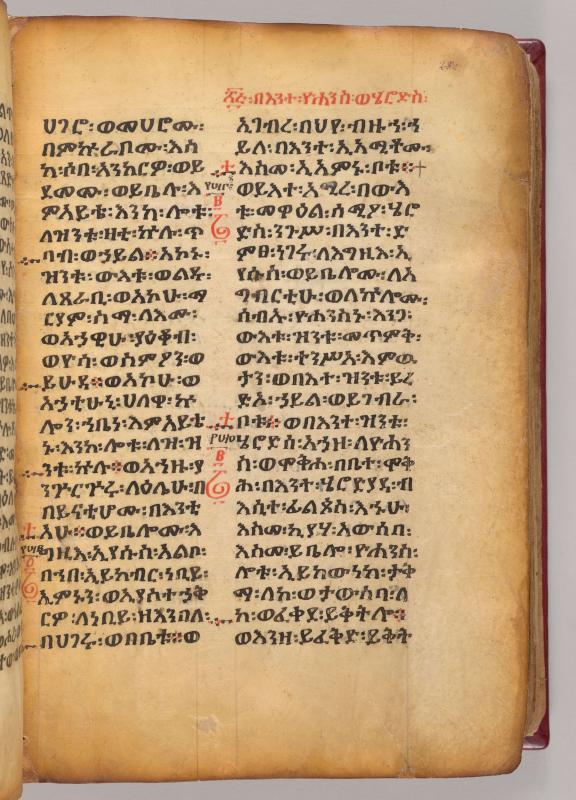 በእንተ፡ዮሐንስ፡ወሄሮድስ፡
ሀገሮ፡ወመሀሮሙ፡
በምኵራቦሙ፡እስ
ከ፡ሶበ፡አንከርዎ፡ወይ
ደመሙ፡ወይቤሉ፡እ
ምአይቴ፡እንከ፡ሎቱ፡
ለዝንቱ፡ዘቲ፡ኵሉ፡ጥ
ባብ፡ወኃይል፡፡አኮኑ፡
ዝንቱ፡ውእቱ፡ወልዱ፡
ለጸራቢ፡ወአኮሁ፡ማ
ርያም፡ስማ፡ለእሙ፡
ወአኃዊሁ፡ያዕቆብ፡
ወዮሳ፡ወስምዖን፡ወ
ይሁዳ፡፡ወአኮሁ፡ወ
አኃቲሁኒ፡ሀለዋ፡ኵ
ሎን፡ኀቤነ፡እምአይቴ
ኑ፡እንከ፡ሎቱ፡ለዝ፡ዝ
ንቱ፡ኵሉ፡፡ወአኀዙ፡ያ
ንጐርጕሩ፡ለዕሌሁ፡በ
በይናቲሆሙ፡በእንቲ
አሁ፡፡ወይቤሎሙ፡እ
ግዚእ፡ኢየሱስ፡አልቦ፡
በኀበ፡ኢይከብር፡ነቢይ፡
ኢምኑን፡ወኢያስተኃቅ
ርዎ፡ለነቢይ፡ዘእንበለ፡
በሀገሩ፡ወበቤቱ፡፡ወ
ኢገብረ፡በህየ፡ብዙኀ፡ኀ
ይለ፡በእንተ፡
እስመ፡ኢአምኑ፡ቦቱ፡፡
ወይእተ፡አሚረ፡በውእ
ቱ፡መዋዕል፡ሰሚዖ፡ሄሮ
ድስ፡ንጉሥ፡በእንተ፡ድ
ምፀ፡ነገሩ፡ለእግዚእ፡ኢ
የሱስ፡ወይቤሎሙ፡ለአ
ግብርቲሁ፡ወለኵሎሙ፡
ሰብኡ፡ዮሐንስኑ፡እንጋ፡
ውእቱ፡ዝንቱ፡መጥምቅ፡
ውእቱ፡ተንሥአ፡እምዉ
ታን፡ወበእተ፡ዝንቱ፡ይረ
ድኦ፡ኃይል፡ወይገብራ፡
ቦቱ፡፡ወበእንተ፡ዝንቱ፡
ሄሮድስ፡አኃዘ፡ለዮሐን
ስ፡ወሞቅሖ፡በቤተ፡ሞቅ
ሕ፡በእንተ፡ሄሮድያዳ፡ብ
እሲተ፡ፊልጶስ፡እኁሁ፡
እስመ፡ኪያሃ፡አውሰበ፡
እስመ፡ይቤሎ፡ዮሐንስ፡
ሎቱ፡ኢይከውነከ፡ታቅ
ማ፡ለከ፡ወታውስባ፡ለ
ከ፡ወፈቅደ፡ይቅትሎ፡፡
ወእንዘ፡ይፈቅድ፡ይቅት